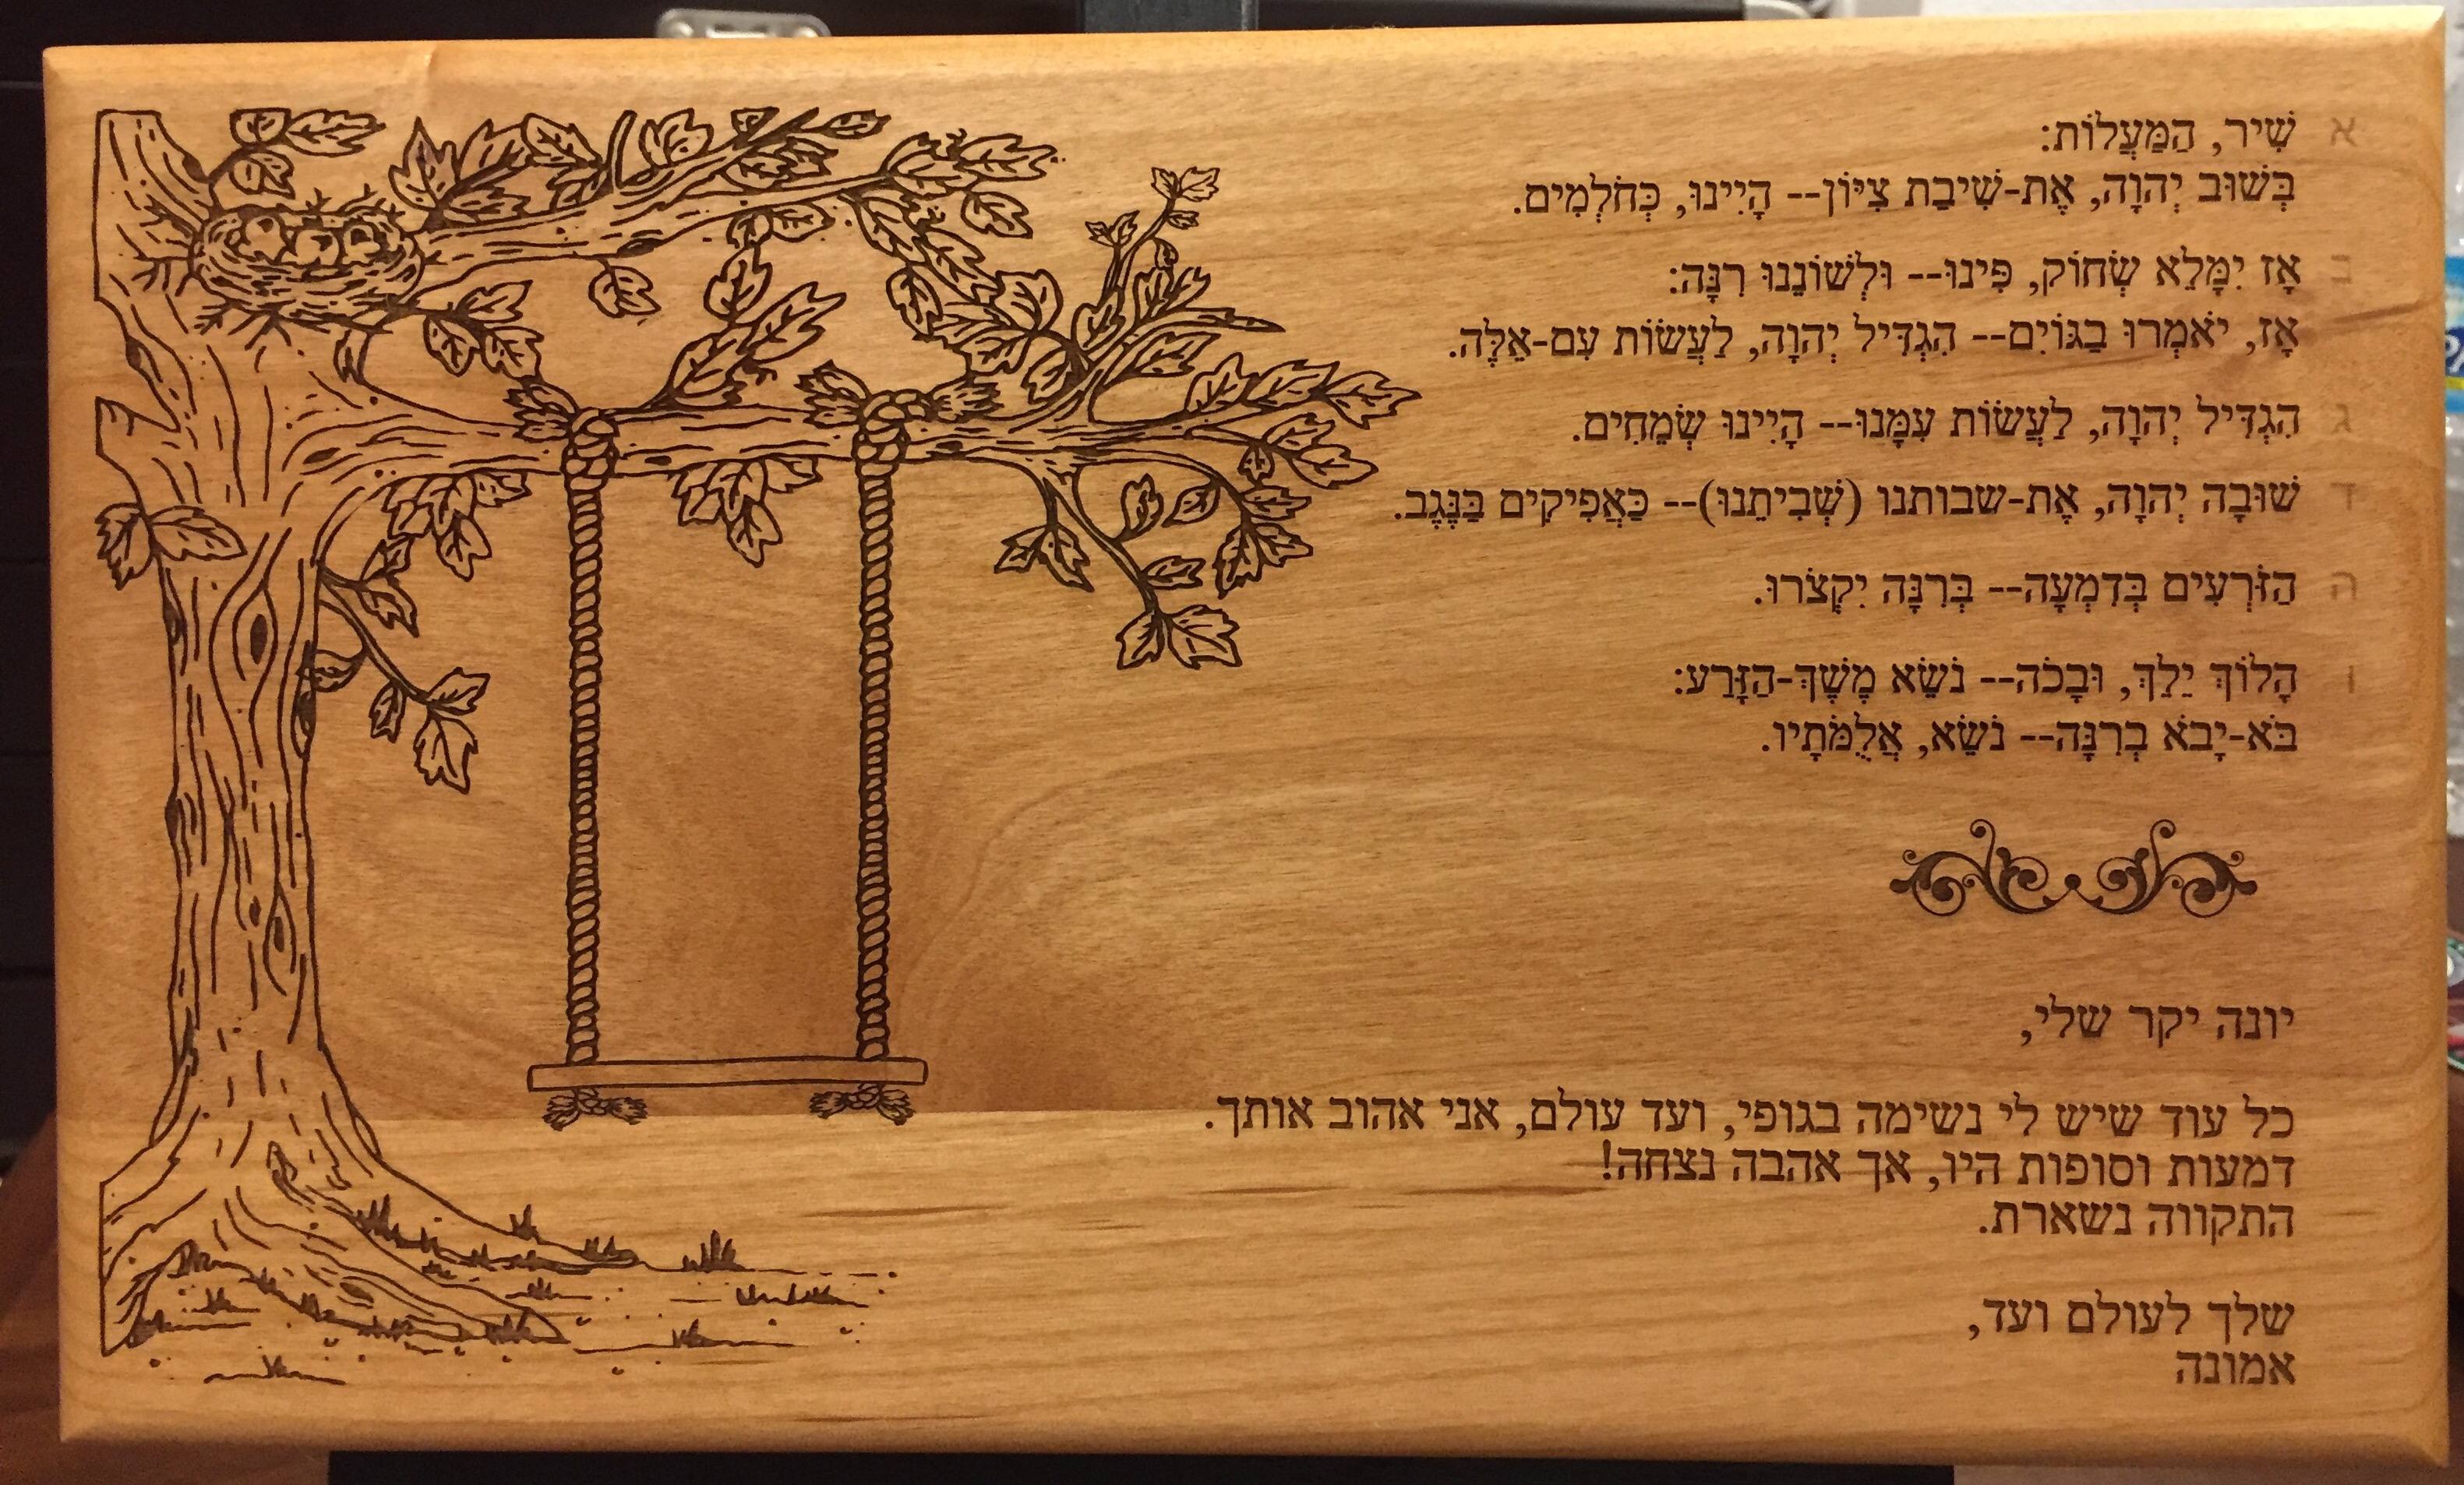 א שִׁיר, הַמַּעֲלוֹת:
בְּשׁוּב יְהוָה, אֶת-שִׁיבַת צִיּוֹן-- הָיִינוּ, כְּחֹלְמִים.
ב אָז יִמָּלֵא שְׂחוֹק, פִּינוּ-- וּלְשׁוֹנֵנוּ רִנָּה:
אָז, יֹאמְרוּ בַגּוֹיִם-- הִגְדִּיל יְהוָה, לַעֲשׂוֹת עִם-אֵלֶּה.
ג הִגְדִּיל יְהוָה, לַעֲשׂוֹת עִמָּנוּ-- הָיִינוּ שְׂמֵחִים.
ד שׁוּבָה יְהוָה, אֶת-שבותנו (שְׁבִיתֵנוּ)-- כַּאֲפִיקִים בַּנֶּגֶב.
ה הַזֹּרְעִים בְּדִמְעָה-- בְּרִנָּה יִקְצֹרוּ.
ו הָלוֹךְ יֵלֵךְ, וּבָכֹה-- נֹשֵׂא מֶשֶׁךְ-הַזָּרַע:
בֹּא-יָבֹא בְרִנָּה-- נֹשֵׂא, אֲלֻמֹּתָיו.
יונה יקר שלי,
כל עוד שיש לי נשימה בגופי, ועד עולם, אני אהוב אותך.
דמעות וסופות היו, אך אהבה נצחה!
התקווה נשארת.
שלך לעולם ועד,
אמונה